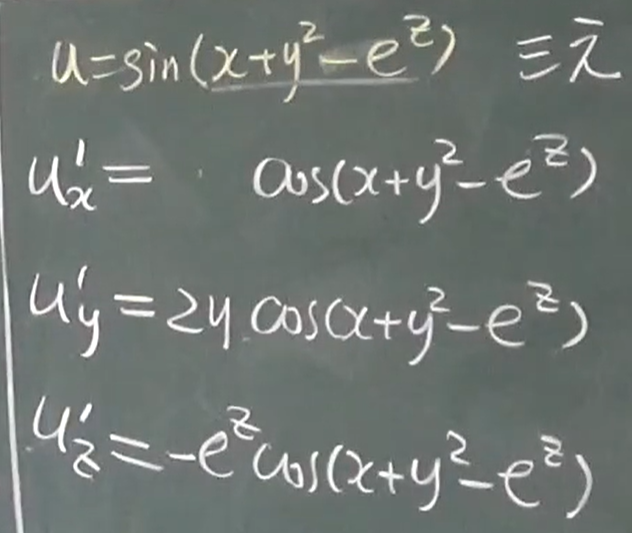 u=sin(x+y²-e^z) 三元
u'ₓ= cos(x+y²-e^z)
u'_y=2y cos(x+y²-e^z)
u'_z=-e^z cos(x+y²-e^z)